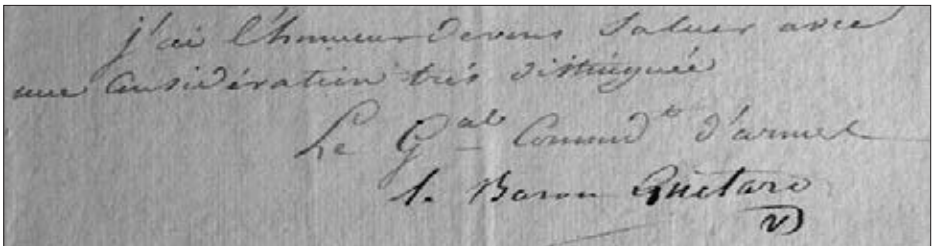 j'ai l'honneur de vous Saluer avec
une Considération très distinguée
Le Gal Commdt d'armes
le Baron Guétard